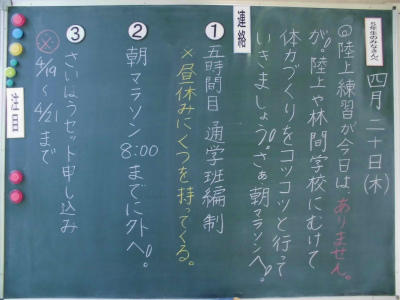 ５年生のみなさんへ
四月二十日(木)
◎陸上練習が今日はありません。
が。陸上や林間学校にむけて
体力づくりをコツコツと行って
いきましょう。さぁ朝マラソンへ。
連絡
① 五時間目 通学班編制
×昼休みにくつを持ってくる。
② 朝マラソン 8:00までに外へ。
③ さいほうセット申し込み
4/19〜4/21まで